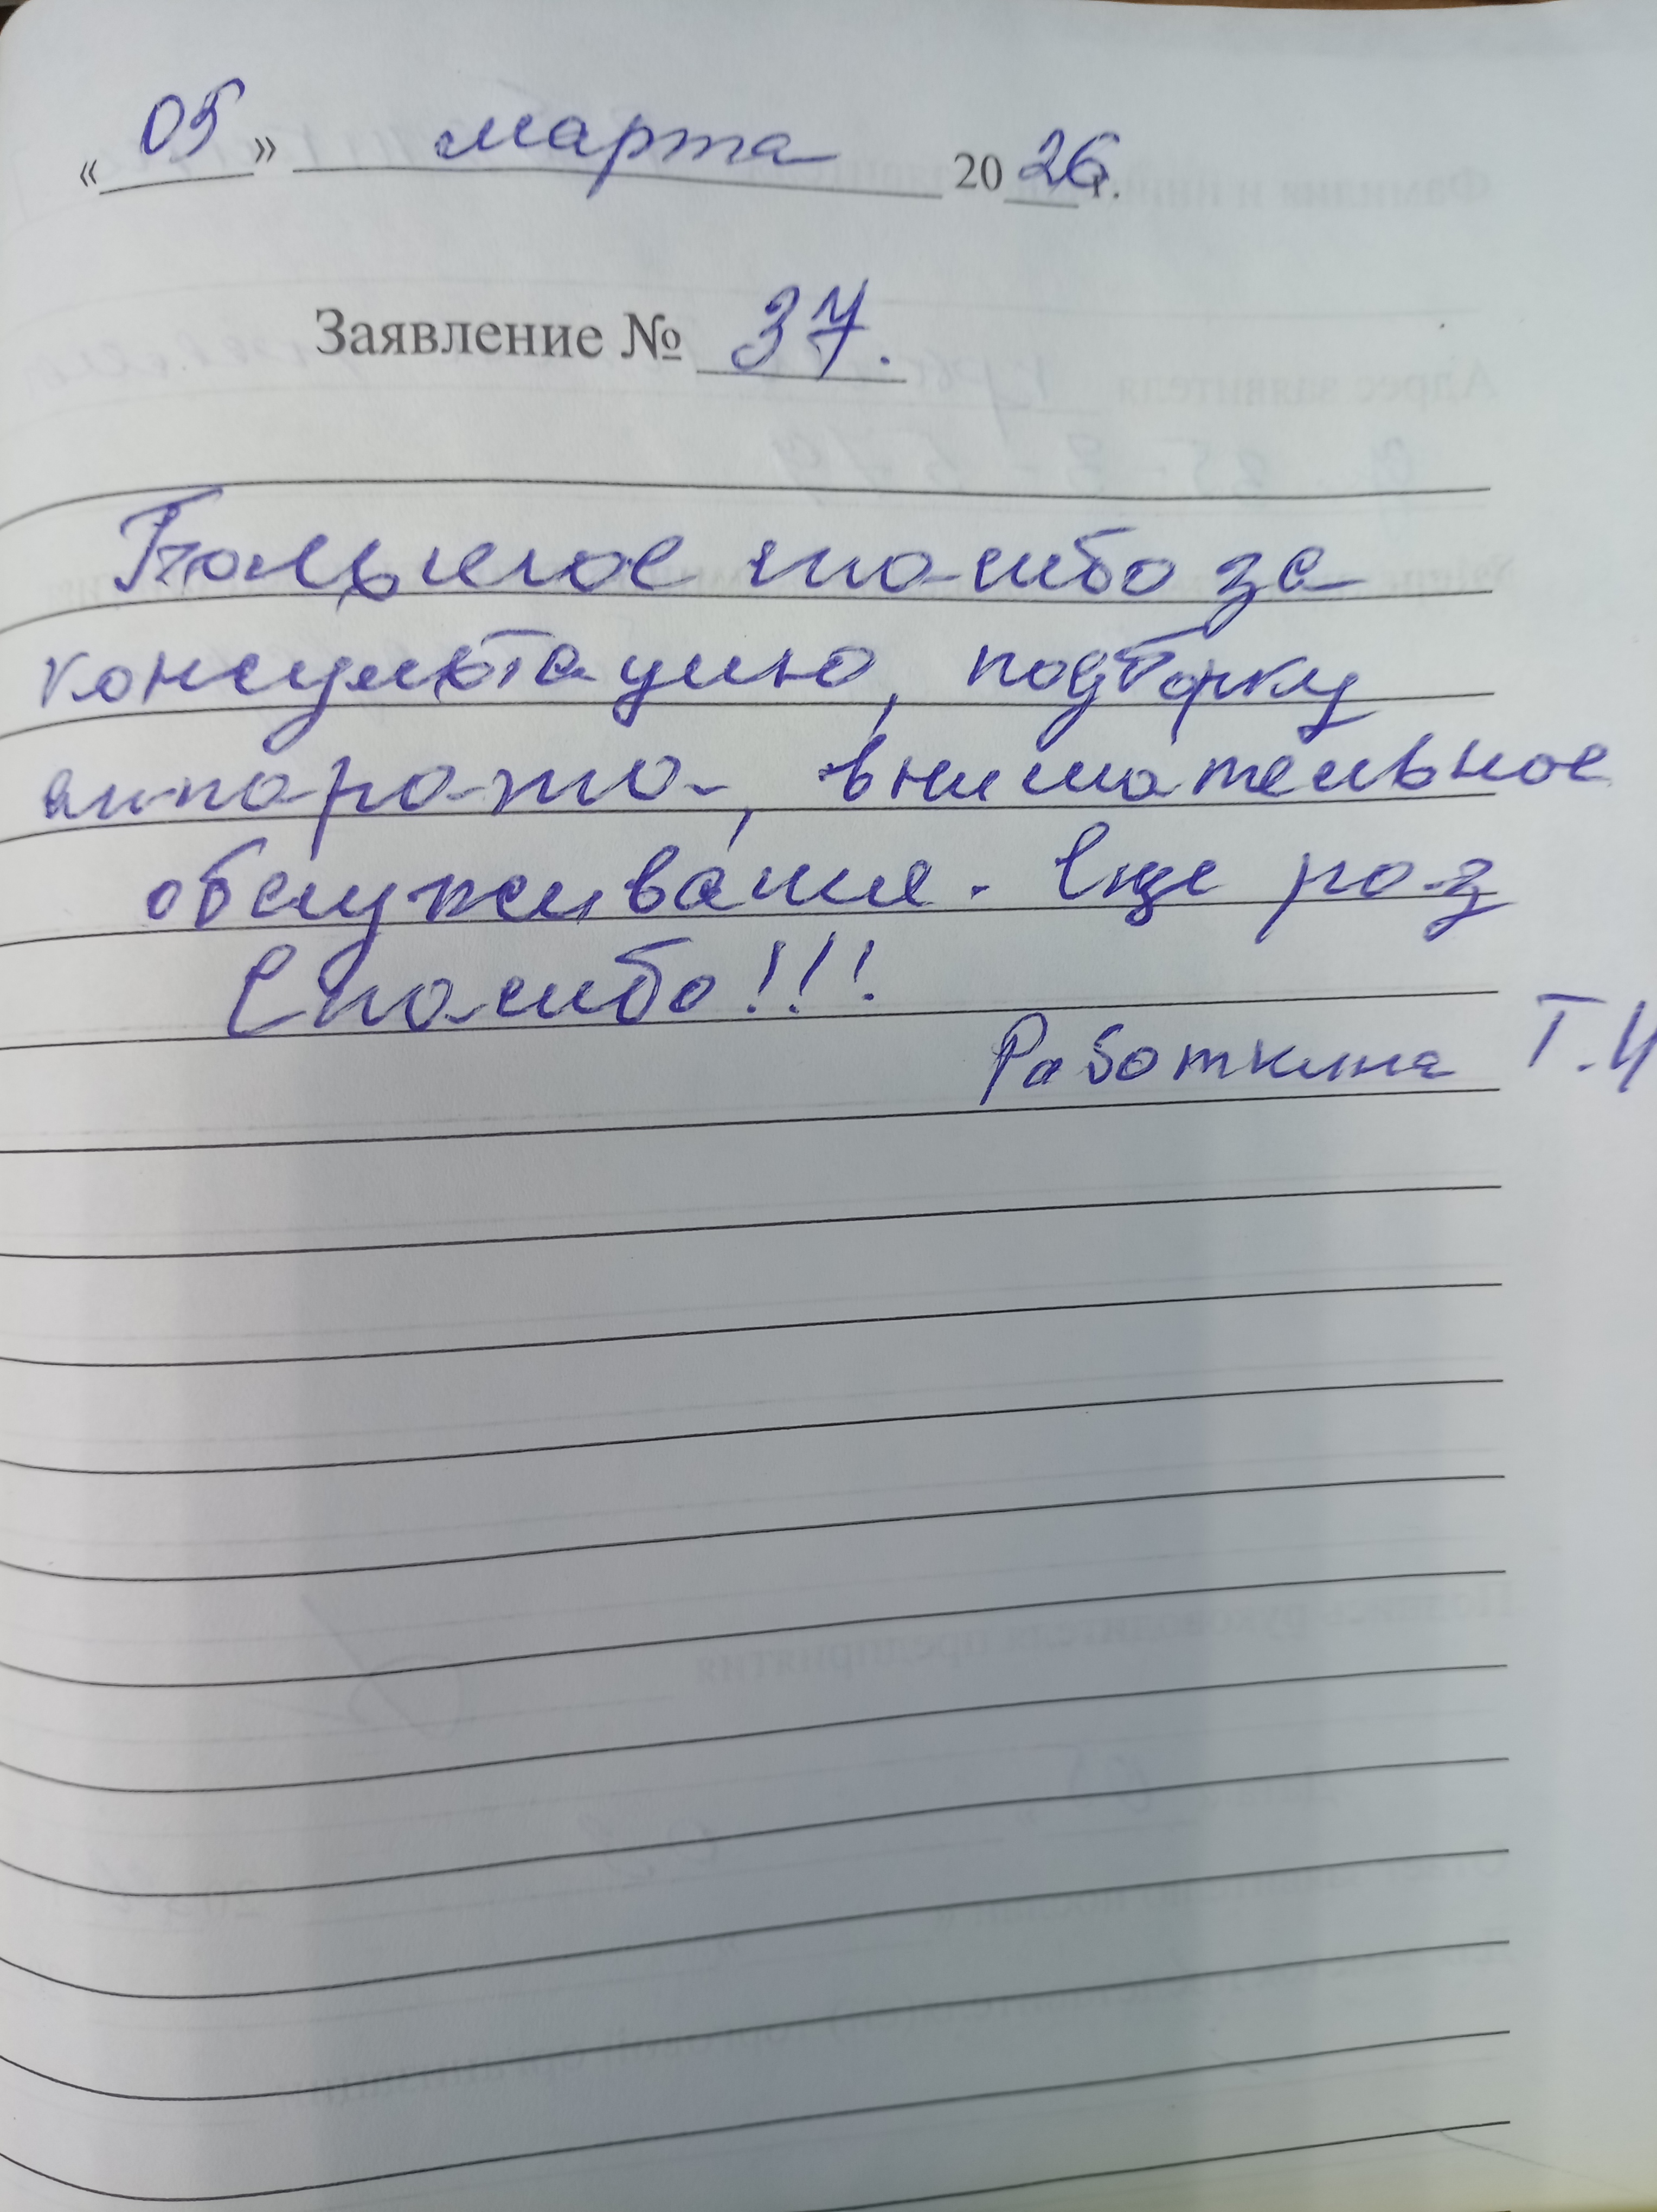 «05» марта 2026г.
Заявление № 37.
Большое спасибо за
консультацию, подборку
аппарата, внимательное
обслуживание. Еще раз
Спасибо!!!
Работкина Т.И